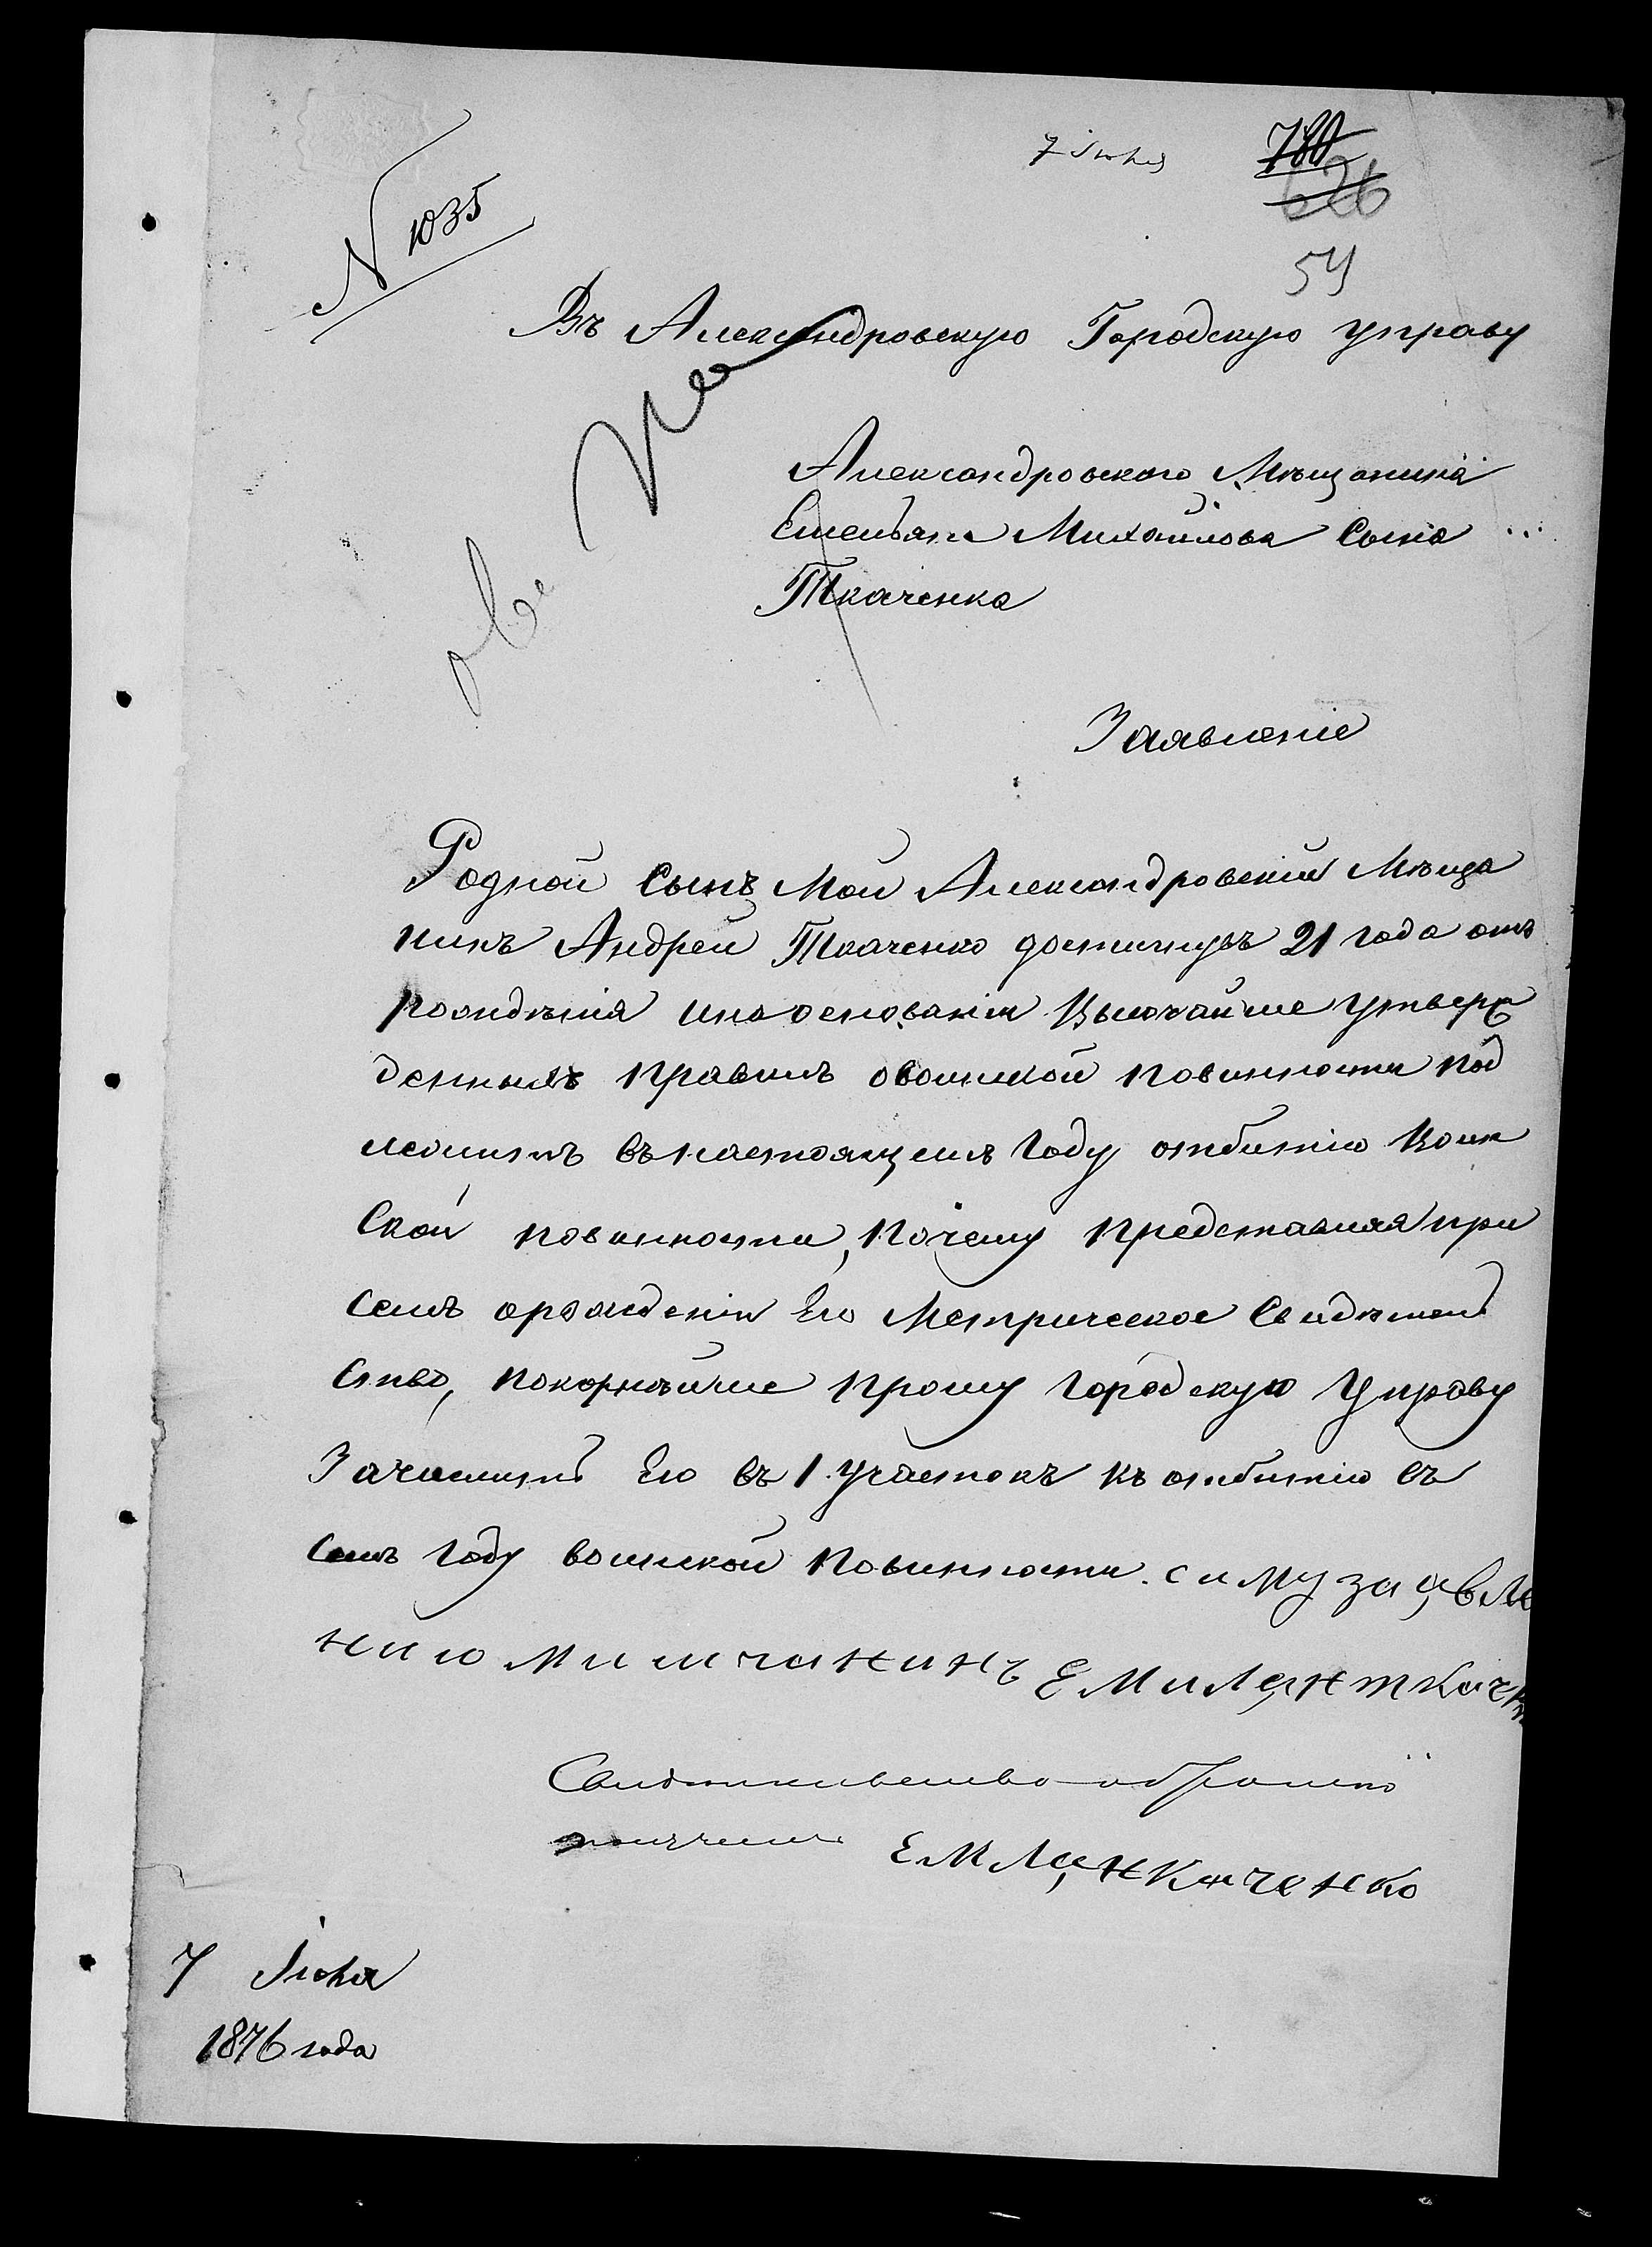 7 Іюня
780
626
54
N 1035
Въ Александровскую Городскую управу
Александровского Мѣщанина
Емельяна Михайлова Сына
Ткаченка
Заявленіе
Родной Сынъ Мой Александровский Мѣща
нинъ Андрей Ткаченко достигнувъ 21 года отъ
рождѣнія и на основаніи Высочайше Утверж
денныхъ правилъ о воинской повинности под
лежитъ въ настоящемъ Году отбытію Воин
Ской повинности, Почему представляя при
семъ о рожденіи Его Метрическое Свидѣтель
Ство, покорнѣйше прошу Городскую Управу
Зачислить Его въ 1 участокъ къ отбытію въ
семъ Году воинской Повинности. симу заявле
нию мишчанинъ Емилян Ткачен
Свидѣтельство обратно
получилъ Емлян Каченко
7 Іюня
1876 года